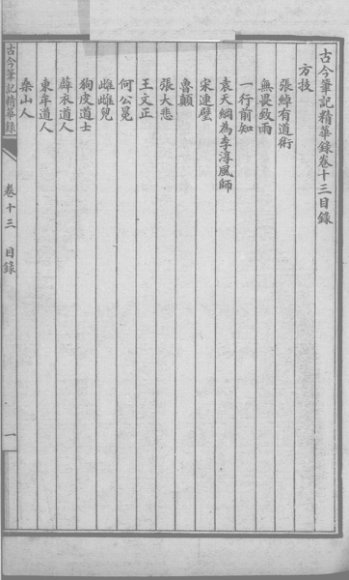 古今筆記精華錄卷十三目錄
方技
張綽有道術
無畏致雨
一行前知
袁天綱為李淳風師
宋連璧
魯顛
張大悲
王文正
何公冕
雌雌兒
狗皮道士
薜衣道人
東牟道人
桑山人
古今筆記精華錄 卷十三 目錄 一